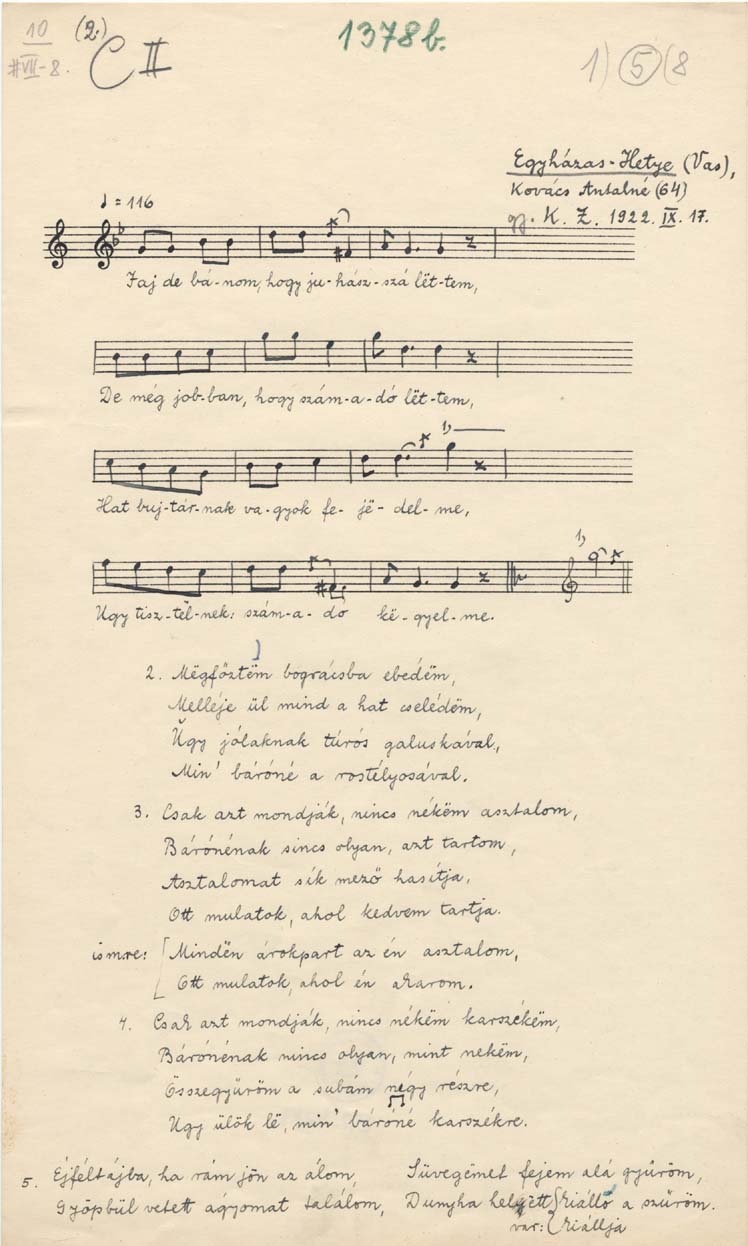 10
VII-8.
(2.)
C II
1378b.
1) 5 (8
Egyházas-Hetye (Vas),
Kovács Antalné (64)
gy. K. Z. 1922. IX. 17.
♩ = 116
Jaj de bá-nom, hogy ju-hász-szá lët-tem,
De még job-ban, hogy szám-a-dó lët-tem,
1)
Hat buj-tár-nak va-gyok fe-jë-del-me,
1)
Ugy tisz-tël-nek: szám-a-dó kë-gyel-me.
2. Mëgfőztëm bográcsba ebedëm,
Melléje ül mind a hat cselédëm,
Ŭgy jólaknak túrós galuskával,
Min' báróné a rostélyosával.
3. Csak azt mondják, nincs nékëm asztalom,
Bárónénak sincs olyan, azt tartom,
Asztalomat sík mező hasítja,
Ott mulatok, ahol kedvem tartja.
ismre: [Mindën árokpart az én asztalom,
Ott mulatok, ahol én akarom.
4. Csak azt mondják, nincs nékëm karszékëm,
Bárónénak nincs olyan, mint nekëm,
Összegyűröm a subám négy részre,
Ugy ülök lë, min' báróné karszékre.
5. Éjféltájba, ha rám jön az álom,
Gyöpbül vetett ágyomat találom,
Süvegëmet fejem alá gyűröm,
Dunyha helyëtt kiálló a szűröm.
var: kiállja